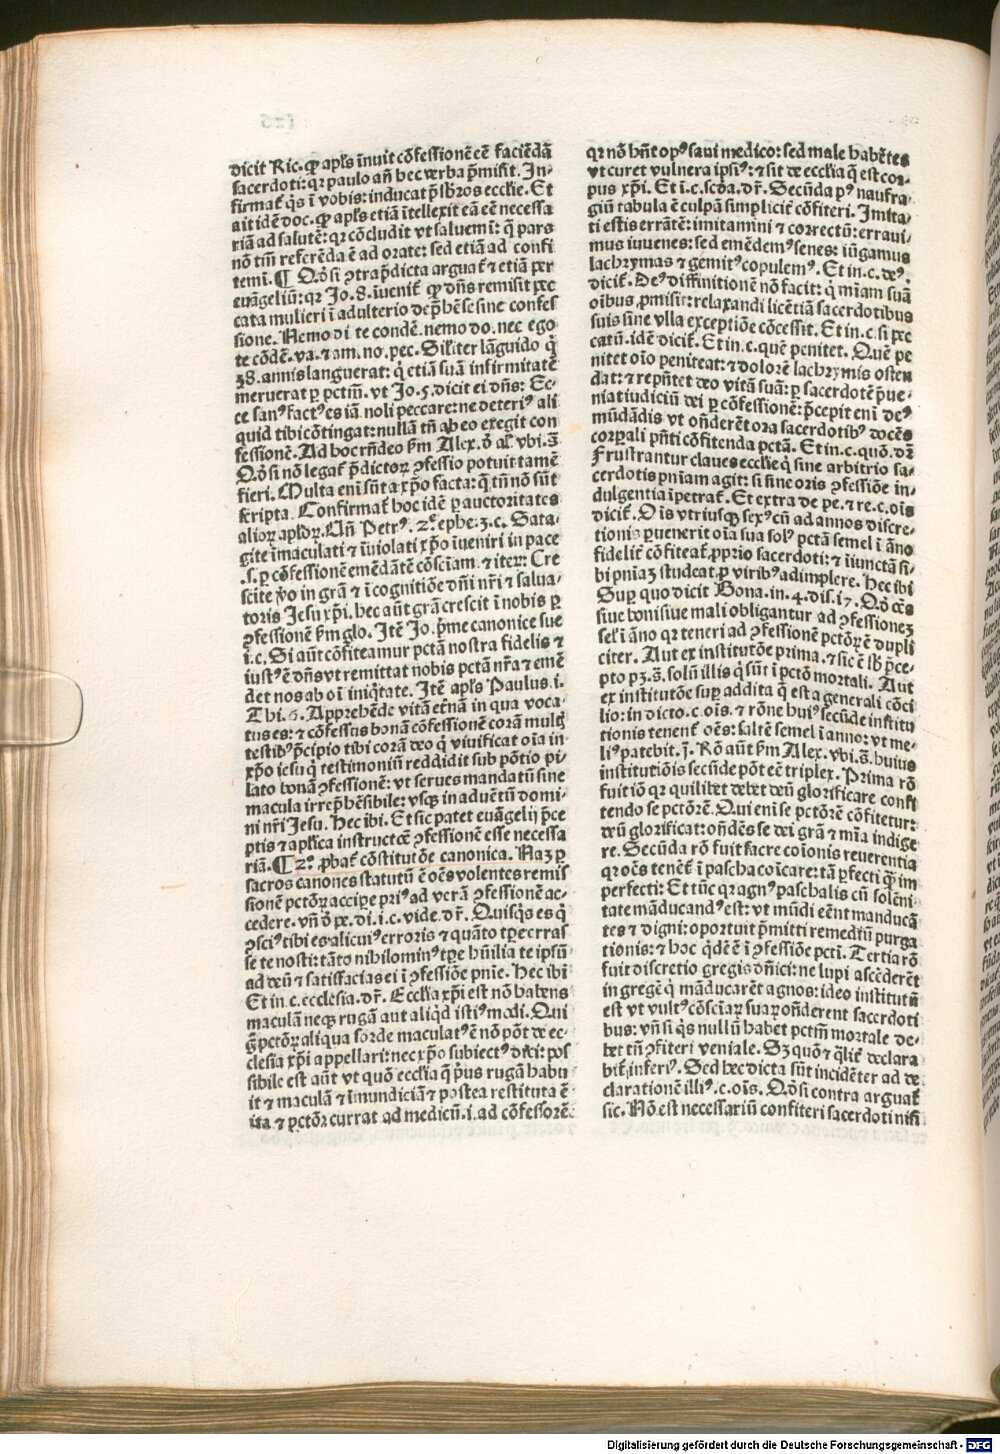 dicit Ric. ꝙ apl's īnuit cōfessionē eē faciēdā
sacerdoti: qꝛ paulo añ hec verba p̄misit. In-
firmat̉ q̇s ī vobis: inducat p̄sbr̄os ecclīe. Et
ait idē doc. ꝙ apl's etiā ītellexit eā eē necessa
riā ad salutē: qꝛ cōcludit vt saluemī: q̄ pars
nō tm̄ referēda ē ad orate: sed etiā ad confi
temī. ¶ Qð si ꝯtra p̄dicta arguat̉ ⁊ etiā per
euāgeliū: qꝛ Jo. 8. īuenit̉ ꝙ dn̄s remisit pec
cata mulieri ī adulterio dep̄hēse sine confes
sione. Nemo ōi te condē. nemo do. nec ego
te cōdē. va. ⁊ am. no. pec. Sil'iter lāguido q̇
38. annis languerat: q̇ etiā suā infirmitatē
meruerat ꝑ pctm̄. vt Jo. 5. dicit ei dn̄s: Ec-
ce sanꝰ factꝰ es iā. noli peccare: ne deteriꝰ ali
quid tibi cōtingat: nullā tn̄ ab eo exegit con
fessionē. Ad hoc rn̄deo ẜm Alex. ō al' vbi. s̄.
Qð si nō legat̉ p̄dictoꝝ ꝯfessio potuit tamē
fieri. Multa eni sūt a xp̄o facta: q̄ tn̄ nō sūt
scripta. Confirmat̉ hoc idē ꝑ auctoritates
alioꝝ apl'oꝝ. Un̄ Petrꝰ. 2ᵉ ephe. 3. c. Sata-
gite īmaculati ⁊ īuiolati xp̄o īueniri in pace
.s. ꝑ cōfessionē emēdātē cōsciam. ⁊ iteꝝ: Cre
scite ꝟo in grā ⁊ ī cognitiōe dn̄i nr̄i ⁊ salua-
toris Jesu xp̄i. hec aūt grā crescit ī nobis ꝑ
ꝯfessionē ẜm glo. Itē Jo. p̄me canonice sue
i. c. Si aūt cōfiteamur pctā nostra fidelis ⁊
iustꝰ ē dn̄s vt remittat nobis pctā nr̄a ⁊ emē
det nos ab oī iniq̇tate. Itē apl's Paulus. i.
Thi. 6. Apprehēde vitā et̉nā in qua voca-
tus es: ⁊ cōfessus bonā cōfessionē corā mult̉
testibꝰ p̄cipio tibi corā deo q̇ viuificat oīa in
xp̄o iesu q̇ testimoniū reddidit sub pōtio pi-
lato bonā ꝯfessionē: vt serues mandatū sine
macula irrep̄hēsibile: vsqꝫ in aduētū domi-
ni nr̄i Jesu. Hec ibi. Et sic patet euāgelij p̄ce
ptis ⁊ apl'ica instructōe ꝯfessionē esse necessa
riā. ¶ 2ᵒ. ꝓbat̉ cōstitutōe canonica. Naꝫ ꝑ
sacros canones statutū ē oēs volentes remis
sionē pctōꝝ accipe priꝰ ad verā ꝯfessionē ac-
cedere. vn̄ ō pe. di. i. c. vide. dr̄. Quisq̇s es q̇
ꝯsciꝰ tibi es alicuiꝰ erroris ⁊ quāto tp̄e erras
se te nosti: tāto nihilominꝰ tp̄e hūilia te ipsū
ad deū ⁊ satisfacias ei ī ꝯfessiōe pnīe. Hec ibi
Et in. c. ecclesia. dr̄. Ecclīa xp̄i est nō habens
maculā neqꝫ rugā aut aliq̇d istiꝰmodi. Qui
g̊ pctōꝝ aliqua sorde maculatꝰ ē nō pōt de ec-
clesia xp̄i appellari: nec xp̄o subiectꝰ dici: pos
sibile est aūt vt quō ecclīa q̄ p̉us rugā habu
it ⁊ maculā ⁊ īmundiciā ⁊ postea restituta ē
ita ⁊ pctōꝝ currat ad medicū. i. ad cōfessorē
qꝛ nō hn̄t opꝰ sani medico: sed male habētes
vt curet vulnera ipsiꝰ: ⁊ sit de ecclīa q̄ est cor-
pus xp̄i. Et ī. c. scða. dr̄. Secūda pꝰ naufra-
giū tabula ē culpā simplicit̉ cōfiteri. Imita-
ti estis errātē: imitamini ⁊ correctū: erraui-
mus iuuenes: sed emēdemꝰ senes: iūgamus
lachrymas ⁊ gemitꝰ copulemꝰ. Et in. c. deꝰ.
dicit̉. Deꝰ diffinitionē nō facit: q̇ mīam suā
oibus ꝓmisit: relaxandi licētiā sacerdotibus
suis sine vlla exceptiōe cōcessit. Et in. c. si pec
catū. idē dicit̉. Et in. c. quē penitet. Quē pe
nitet oīo peniteat: ⁊ dolorē lachrymis osten
dat: ⁊ rep̄ntet deo vitā suā: ꝑ sacerdotē p̄ue-
niat iudiciū dei ꝑ cōfessionē: p̄cepit eni deꝰ
mūdādis vt on̄derēt ora sacerdotibꝰ docēs
corꝑali pn̄ti cōfitenda pctā. Et in. c. quō. dr̄
Frustrantur claues ecclīe q̇ sine arbitrio sa-
cerdotis pniam agit: si sine oris ꝯfessiōe in-
dulgentia īpetrat̉. Et extra de pe. ⁊ re. c. oīs
dicit̉. Oīs vtriusqꝫ sexꝰ cū ad annos discre-
tionis ꝑuenerit oīa sua solꝰ pctā semel ī āno
fidelit̉ cōfiteat̉ ꝓprio sacerdoti: ⁊ iniunctā si-
bi pniaꝫ studeat ꝓ viribꝰ adimplere. Hec ibi
Suꝑ quo dicit Bona. in. 4. dis. i7. Qð oēs
siue boni siue mali obligantur ad ꝯfessioneꝫ
sel' ī āno qꝛ teneri ad ꝯfessionē pctōꝝ ē dupli
citer. Aut ex institutōe prima. ⁊ sic ē sb' p̄ce-
pto pꝫ. s̄. solū illis q̇ sūt ī pctō mortali. Aut
ex institutōe suꝑ addita q̄ est a generali cōci
lio: in dicto. c. oīs. ⁊ rōne huiꝰ secūde institu
tionis tenent̉ oēs: saltē semel ī anno: vt me-
liꝰ patebit. ī. Rō aūt ẜm Alex. vbi. s̄. huius
institutiōis secūde pōt eē triplex. Prima rō
fuit iō qꝛ quilibet debet deū glorificare confi
tendo se pctōrē. Qui eni se pctōrē cōfitetur:
deū glorificat: on̄dēs se dei grā ⁊ mīa indige
re. Secūda rō fuit facre coīonis reuerentia
qꝛ oēs tenēt̉ ī pascha coīcare: tā perfecti qȝ im
perfecti: Et tūc qꝛ agnꝰ paschalis cū solēni-
tate māducandꝰ est: vt mūdi eēnt manducā
tes ⁊ digni: oportuit p̄mitti remediū purga
tionis: ⁊ hoc q̇dē ē ī ꝯfessiōe pcti. Tertia rō
fuit discretio gregis dn̄ici: ne lupi ascēderēt
in gregē q̇ māducarēt agnos: ideo institutū
est vt vultꝰ cōsciaꝝ suaꝝ on̄derent sacerdoti
bus: vn̄ si q̇s nullū habet pctm̄ mortale de-
bet tn̄ ꝯfiteri veniale. Sꝫ quō ⁊ q̇lit̉ declara
bit̉ inferiꝰ. Sed hec dicta sūt incidēter ad de
clarationē illiꝰ. c. oīs. Qð si contra arguat̉
sic. Nō est necessariū confiteri sacerdoti nisi
Digitalisierung gefördert durch die Deutsche Forschungsgemeinschaft - DFG